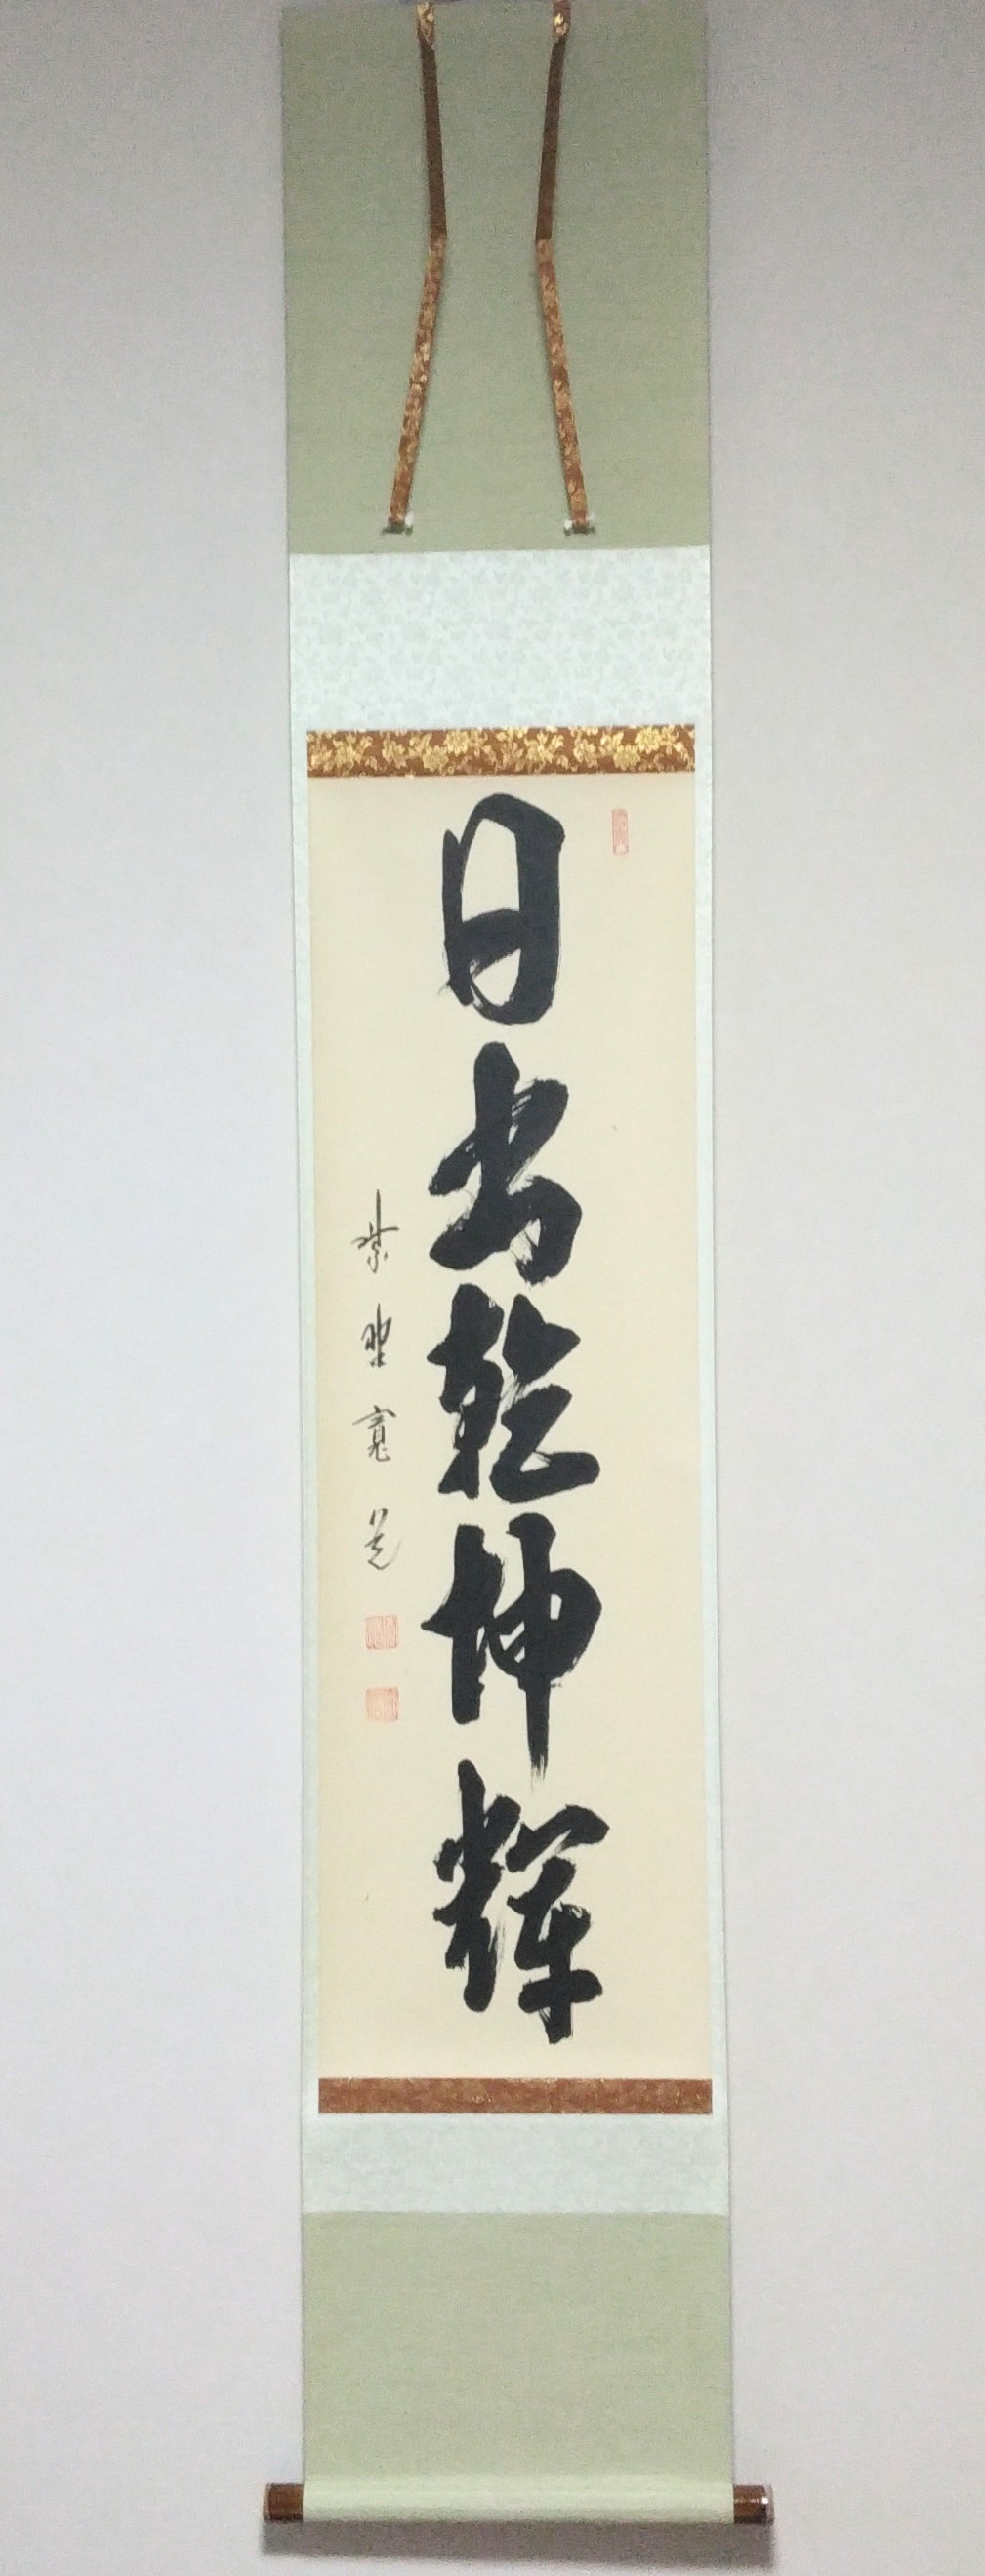 日出乾坤輝
紫野寛道